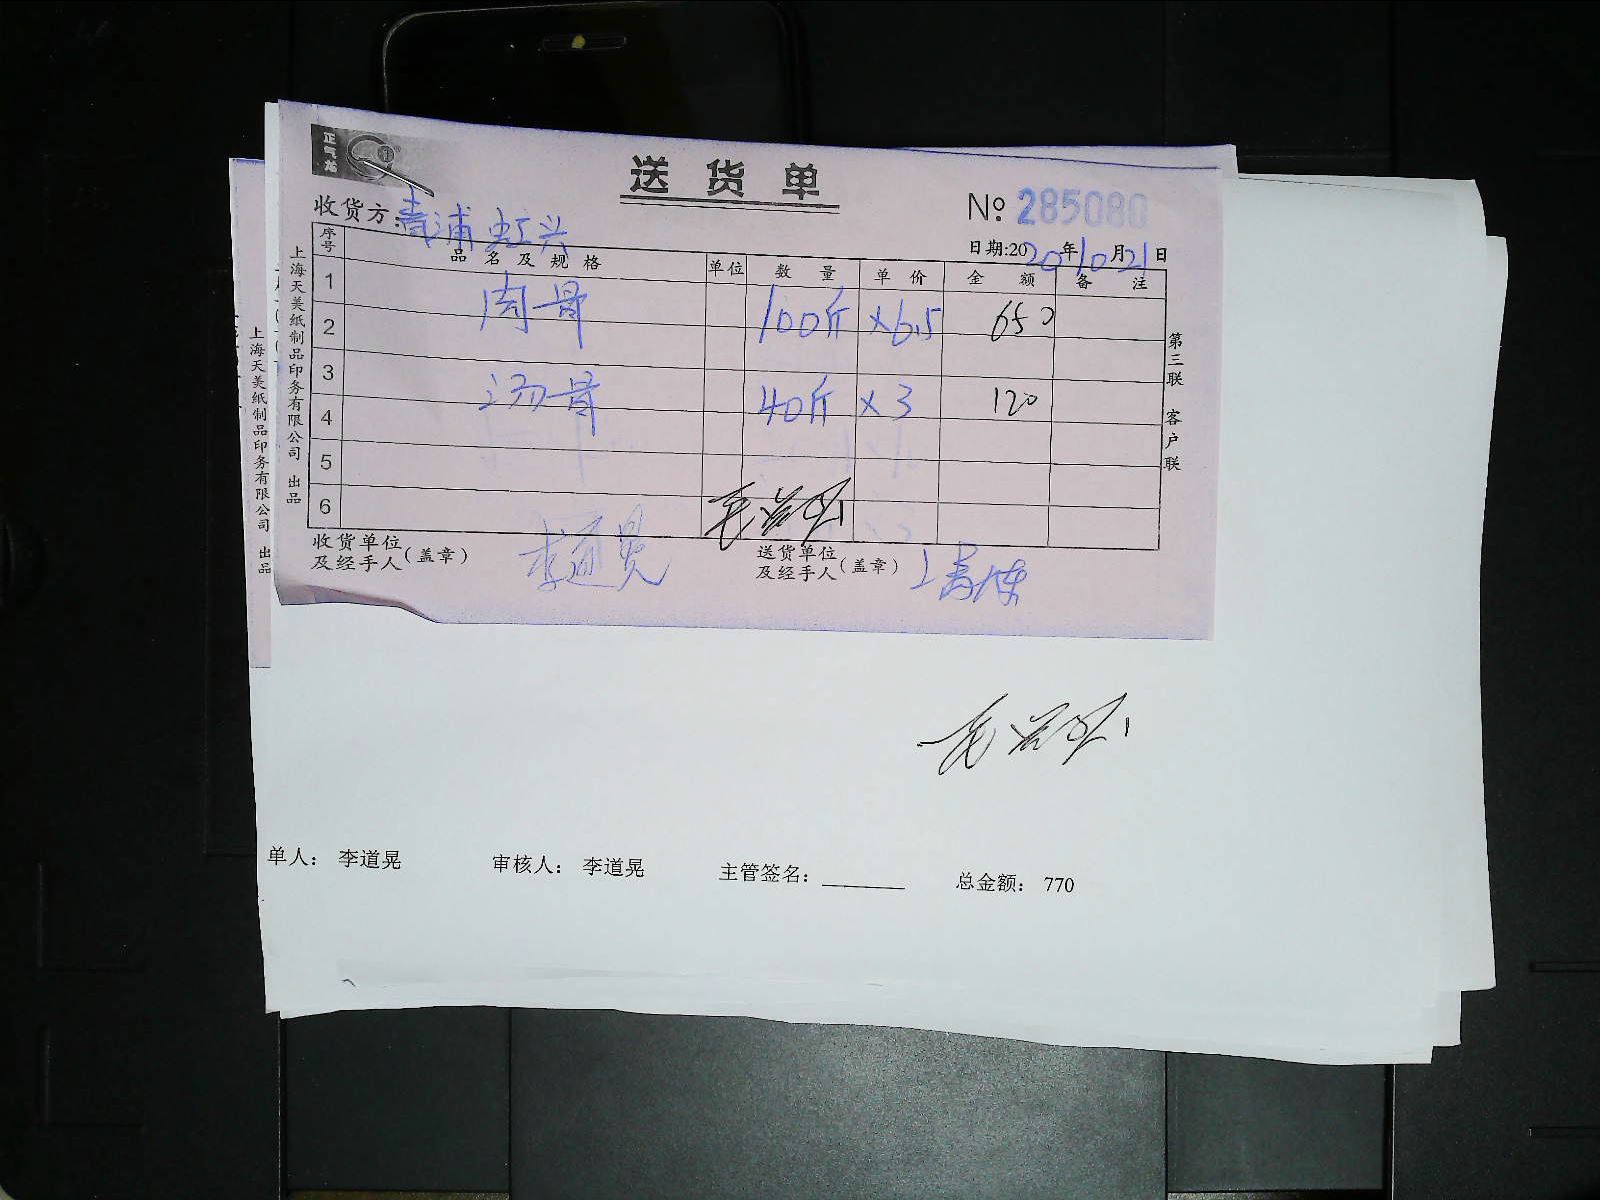 正气龙
送货单
№ 285080
收货方：青浦虹兴
日期:2020年10月21日
序号 品名及规格 单位 数量 单价 金额 备注
1
肉骨 100斤 ×6.5 650
2
3
汤骨 40斤 ×3 120
4
5
6
收货单位及经手人(盖章) 李道晃
送货单位及经手人(盖章)
上海天美纸制品印务有限公司 出品
上海天美纸制品印务有限公司 出品
第三联 客户联
单人： 李道晃 审核人： 李道晃 主管签名： 总金额： 770